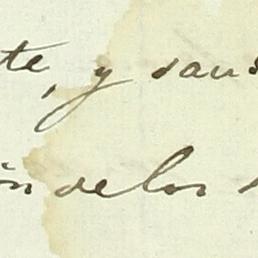 te, y saus
ón de los